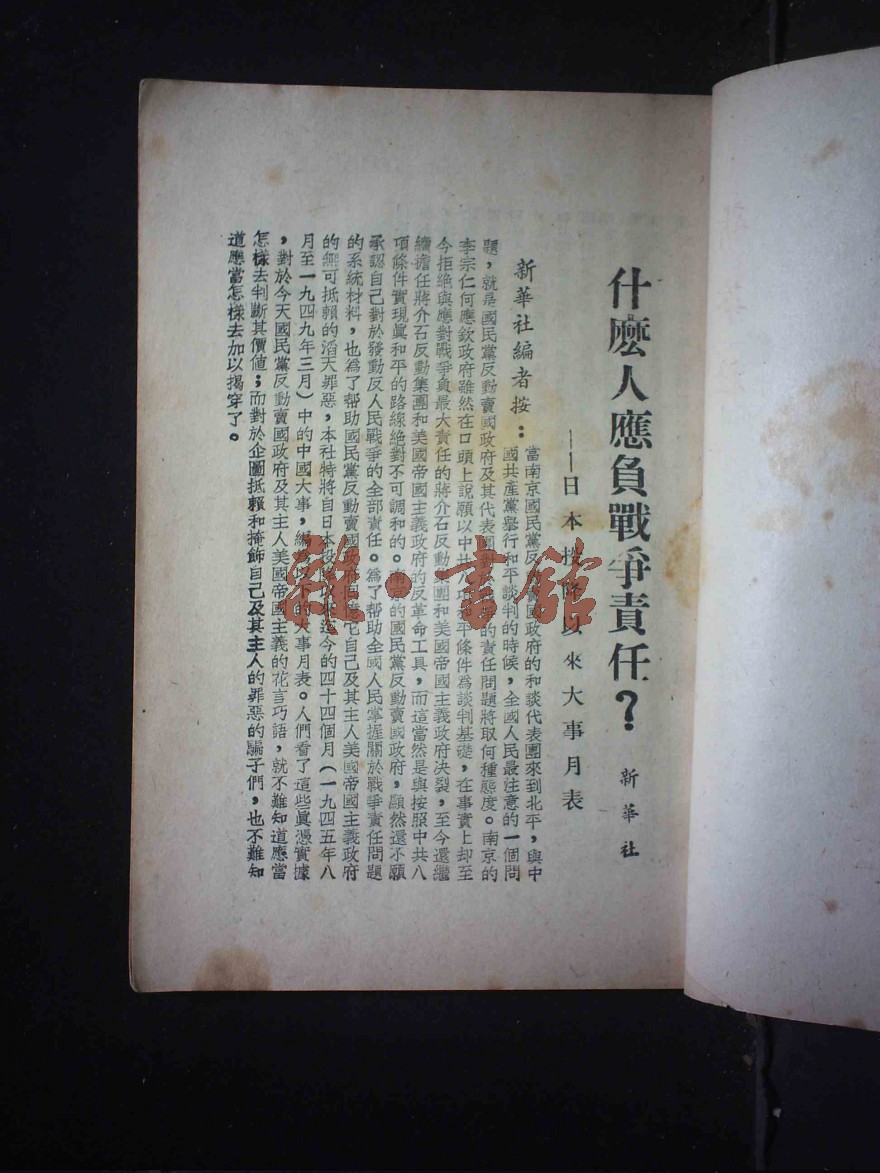 什麼人應負戰爭責任？
新華社
——日本投降以來大事月表
新華社編者按：
當南京國民黨反動賣國政府的和談代表團來到北平，與中
國共產黨舉行和平談判的時候，全國人民最注意的一個問
題，就是國民黨反動賣國政府及其代表團對的責任問題將取何種態度。南京的
李宗仁何應欽政府雖然在口頭上說願以中共八項和平條件為談判基礎，在事實上却至
今拒絕與應對戰爭負最大責任的蔣介石反動集團和美國帝國主義政府决裂，至今還繼
續擔任蔣介石反動集團和美國帝國主義政府的反革命工具，而這當然是與按照中共八
項條件實現眞和平的路線絕對不可調和的。南京的國民黨反動賣國政府，顯然還不願
承認自己對於發動反人民戰爭的全部責任。為了帮助全國人民掌握關於戰爭責任問題
的系統材料，也為了帮助國民黨反動賣國政府回憶它自己及其主人美國帝國主義政府
的無可抵賴的滔天罪惡，本社特將自日本投降以來迄今的四十四個月（一九四五年八
月至一九四九年三月）中的中國大事，編為以下的大事月表。人們看了這些眞憑實據
，對於今天國民黨反動賣國政府及其主人美國帝國主義的花言巧語，就不難知道應當
怎樣去判斷其價値；而對於企圖抵賴和掩飾自己及其主人的罪惡的騙子們，也不難知
道應當怎樣去加以揭穿了。
雜·書館